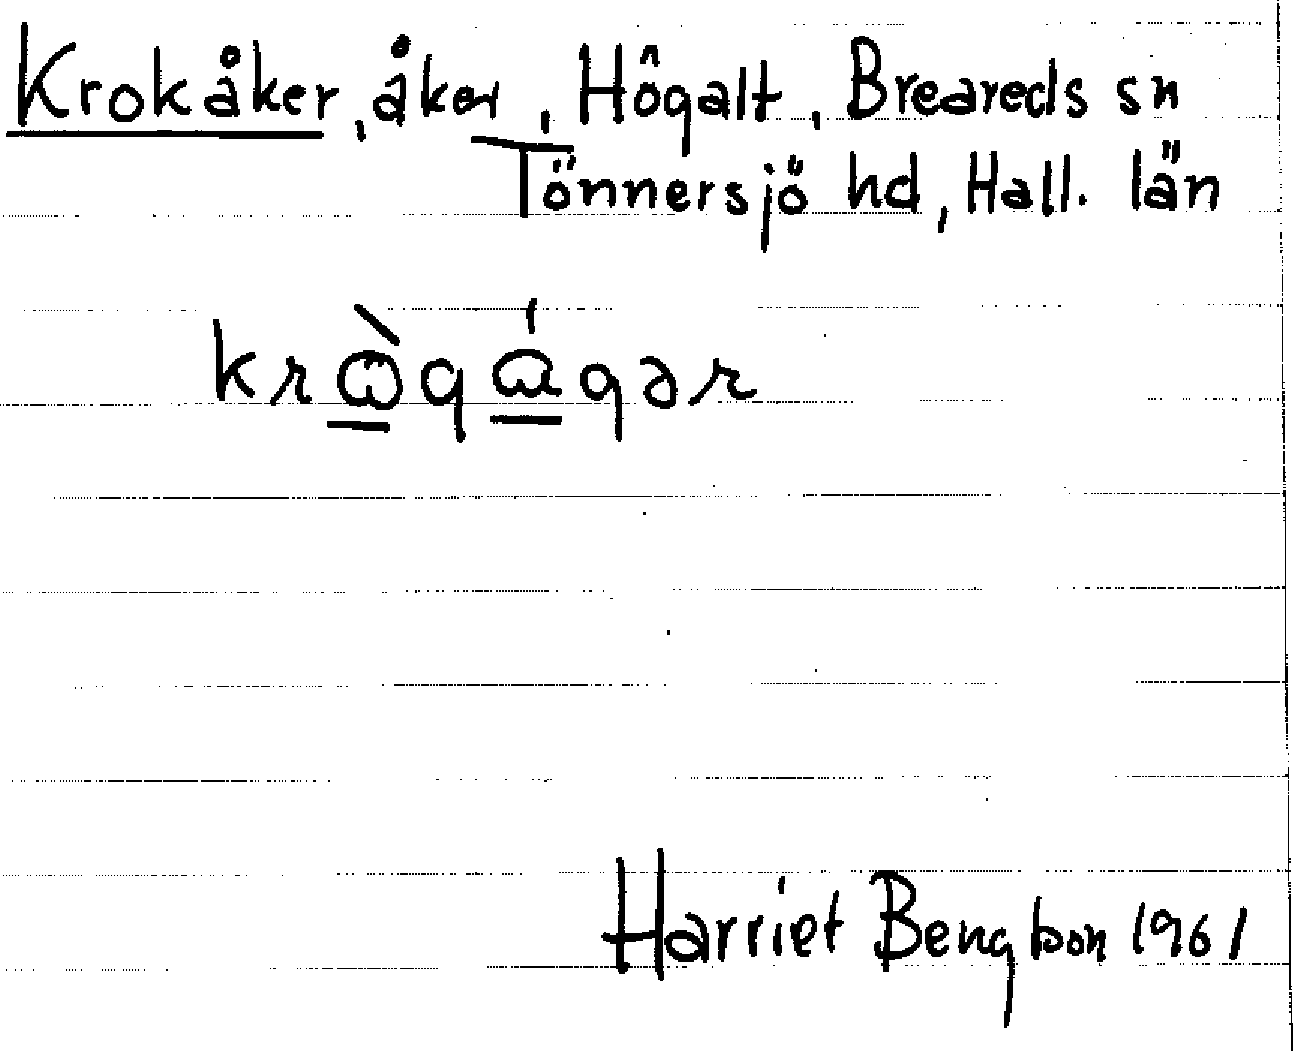 Krokåker, åker, Högalt, Breareds sn
Tönnersjö hd, Hall. län
krὼ̲qά̲qər
Harriet Bengtson 1961